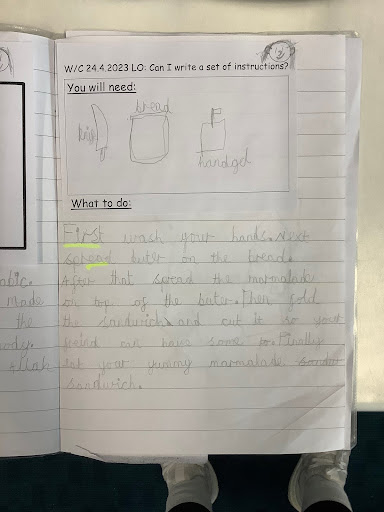 W/C 24.4.2023 LO: Can I write a set of instructions?
You will need:
bread
handgel
What to do:
First wash your hands. Next
spread buter on the bread.
After that spread the marmalade
on top of the buter. Then fold
the sandwich and cut it so your
freind can have some to. Finally
eat your yummy marmalade
sandwich.
made
the